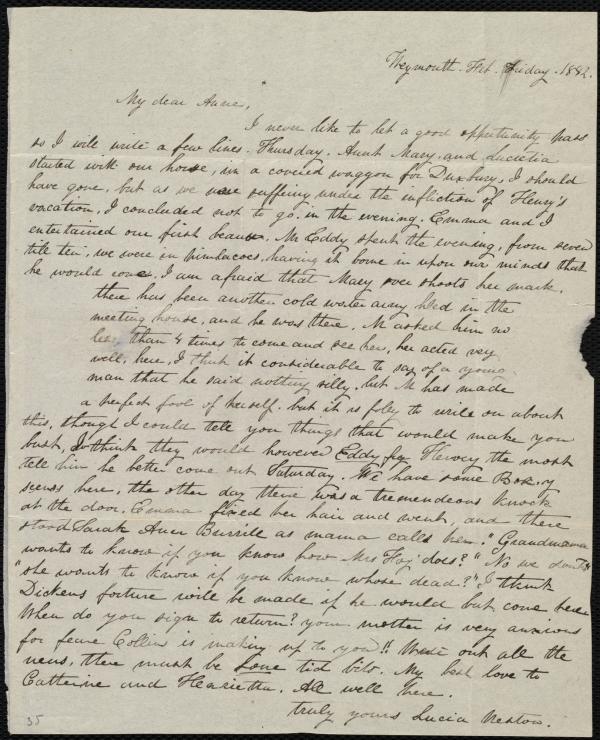 Weymouth. Feb. Friday. 1842.
My dear Anne,
I never like to let a good opportunity pass
so I will write a few lines. Thursday. Aunt Mary, and Lucretia
started with our horse, in a covered waggon for Duxbury, I should
have gone, but as we were suffering under the infliction of Henry's
vacation, I concluded not to go. in the evening. Emma and I
entertained our first beaux. Mr Eddy spent the evening, from seven
till ten, we were in pimlacoes, having it borne in upon our minds that
he would come, I am afraid that Mary over shoots her mark.
there has been another cold water army held in the
meeting house, and he was there. M asked him no
less than 4 times to come and see her, he acted very
well, here, I think it considerable to say of a young
man that he said nothing silly, but M has made
a perfect fool of herself. but it is folly to write on about
this, though I could tell you things that would make you
bust, I think they would however Eddy Hervey the most
tell him he better come out Saturday. We have some Boz. y
scenes here, the other day there was a tremendeous knock
at the door, Emma fixed her hair and went, and there
stood Sarah Ann Burrill as mama calls her. "Grandmama
wants to know if you know how Mrs Hoy does?" "No we don't"
"she wants to know if you know whose dead?" I think
Dickens forture will be made if he would but come here
When do you sign to return? your mother is very anxious
for feare Collin is making up to you!! Write out all the
news, there must be some tid bits. My best love to
Catherine and Henrietta. All well here.
truly yours Lucia Weston.
35